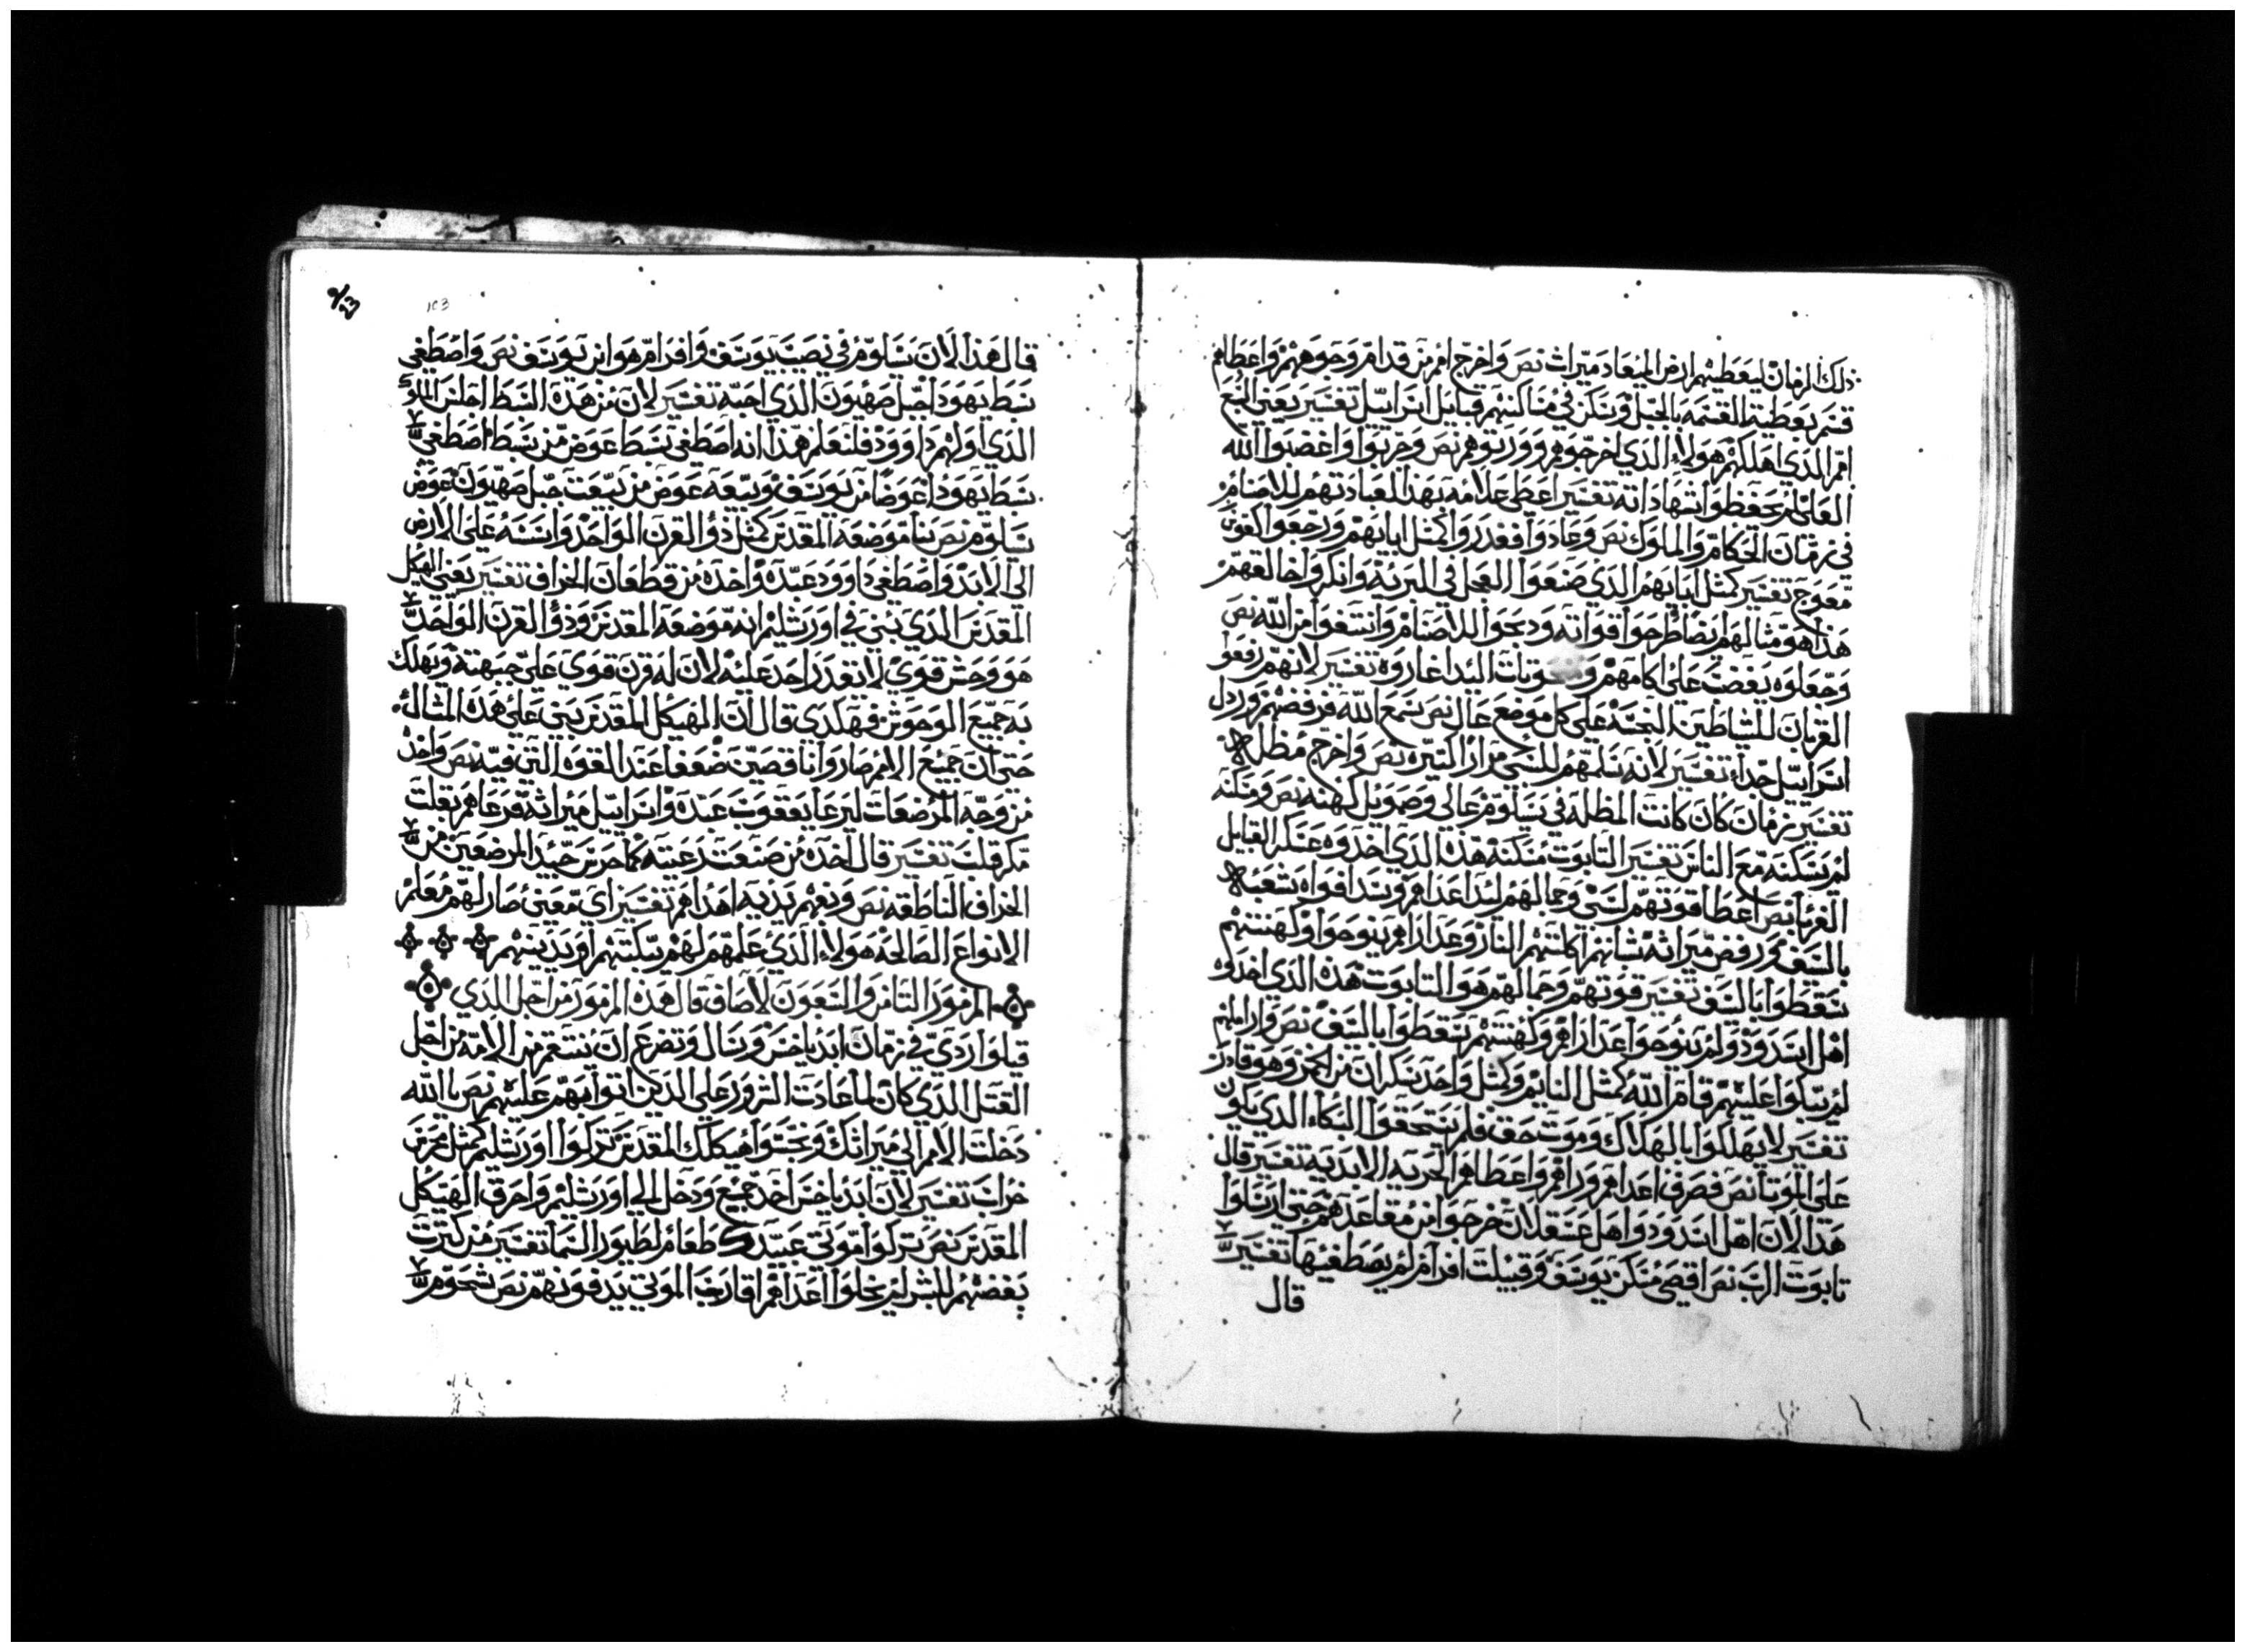 ذلك الزمان ليعطيهم ارض الميعاد ميراث نص واخرج امم من قدام وجوههم واعطاهم
قسم بعطية القسمه بالحبل وسكن في مساكنهم قبايل اسراييل تفسير يعني السبع
امم الذي اهلكهم هولاء الذي اخرجوهم وورثوهم نص وجربوا واغضبوا الله
العالي لم يحفظوا شهاداته تفسير اعطى علامه بهذا لعبادتهم للاصنام
في زمان الحكام والملوك نص وعادوا فغدروا كمثل ابايهم ورجعوا كقوس
معوج تفسير كمثل ابايهم الذي صنعوا العجل في البريه وانكروا خالقهم
هذا هو مثالهم ايضا طرحوا قواته ودبحوا للاصنام وانتسفوا من الله نص
وجعلوه يغضب على اكامهم وبمنحوتات اليد اغاروه تفسير لانهم رفعوا
القربان للشياطين النجسه على كل موضع عال نص سمع الله فرفضهم وردل
اسراييل جدا تفسير لانه سلمهم للسبي مرارا كتيره نص واخرج مظله
تفسير زمان كان كانت المظله في سلوم عالي وصمويل كهنه نص ومسكنه
لم يسكنه مع الناس تفسير التابوت مسكنه هذه الذي اخدوه عسكر القبايل
الغربا نص اعطا قوتهم لسبي وجمالهم ليد اعداهم وسد افواه شعبه
بالسيف ورفض ميراثه شبانهم اكلتهم النار وعداراهم لم ينوحوا وكهنتهم
سقطوا بالسيف تفسير قوتهم وجمالهم هو التابوت هذه الذي اخدوه
اهل اسدود ولم ينوحوا عداراهم وكهنتهم سقطوا بالسيف نص واراملهم
لم يبكوا عليهم قام الله كمثل النايم وكمثل واحد سكران من الخمر وهو قادر
تفسير لا يهلكوا بالهلاك وموت حق فلم يستحقوا البكاء الذي يكون
على الموتا نص فصرف اعداهم وراهم واعطاهم الخزيه الابديه تفسير قال
هذا لان اهل اسدود واهل عسقلان خرجوا من مقاعدهم حتى ارسلوا
تابوت الرب نص اقصى مسكن يوسف وقبيلت افرام لم يصطفيها تفسير
قال
قال هذا لان سلوم في نصيب يوسف وافرام هو ابن يوسف نص واصطفى
سبط يهودا جبل صهيون الذي احبه تفسير لان من هذه السبط اجلس الملوك
الذي اولهم داوود فلنعلم هذا انه اصطفى سبط عوض من سبط اصطفى
سبط يهودا عوضا من يوسف وبيعه عوض من بيعت جبل صهيون عوض
سلوم نص بنا موضعه المقدس كمثل ذو القرن الواحد واسسه على الارض
الى الابد واصطفى داوود عبده واخده من قطعان الخراف تفسير يعني الهيكل
المقدس الذي بني في اورشليم انه موضعه المقدس وذو القرن الواحد
هو وحش قوي لا يقدر احد عليه لان له قرن قوي على جبهته ويهلك
به جميع الوحوش فهلدى قال ان الهيكل المقدس بني على هذه المثال
حتى ان جميع الامم صاروا ناقصين ضعفا عند القوه التي فيه نص واخد
من وجه المرضعات ليرعا يعقوب عبده واسراييل ميراثه فرعاهم بقلب
مكر قلب تفسير قال اخده من صنعت رعيته كما حرس جيد المرضعين من
الخراف الناطقه نص وبفهم يديه اهداهم تفسير اى معنى صار لهم معلم
الانواع الصالحه هولاء الذي علمهم لهم يبكتهم او يدينهم
المزمور الثامن والسبعون لاصاف قال هذه المزمور من اجل الذي
قبلوا ردى في زمان ابدياخس وسال وتضرع ان ينتقم من الامه من اجل
القتل الذي كان لما عادت الشرور على الذين اتوا بهم عليهم نص يا الله
دخلت الامم الى ميراثك ونجسوا هيكلك المقدس تركوا اورشليم كمثل محرس
خراب تفسير لان ابدياخس اخد جميع ودخل الى اورشليم واحرق الهيكل
المقدس نص تركوا موتى عبيدك طعام لطيور السما تفسير من كترت
بغضهم للبشر لم يخلوا اعداهم اقارب الموتى يدفونهم نص شحوم